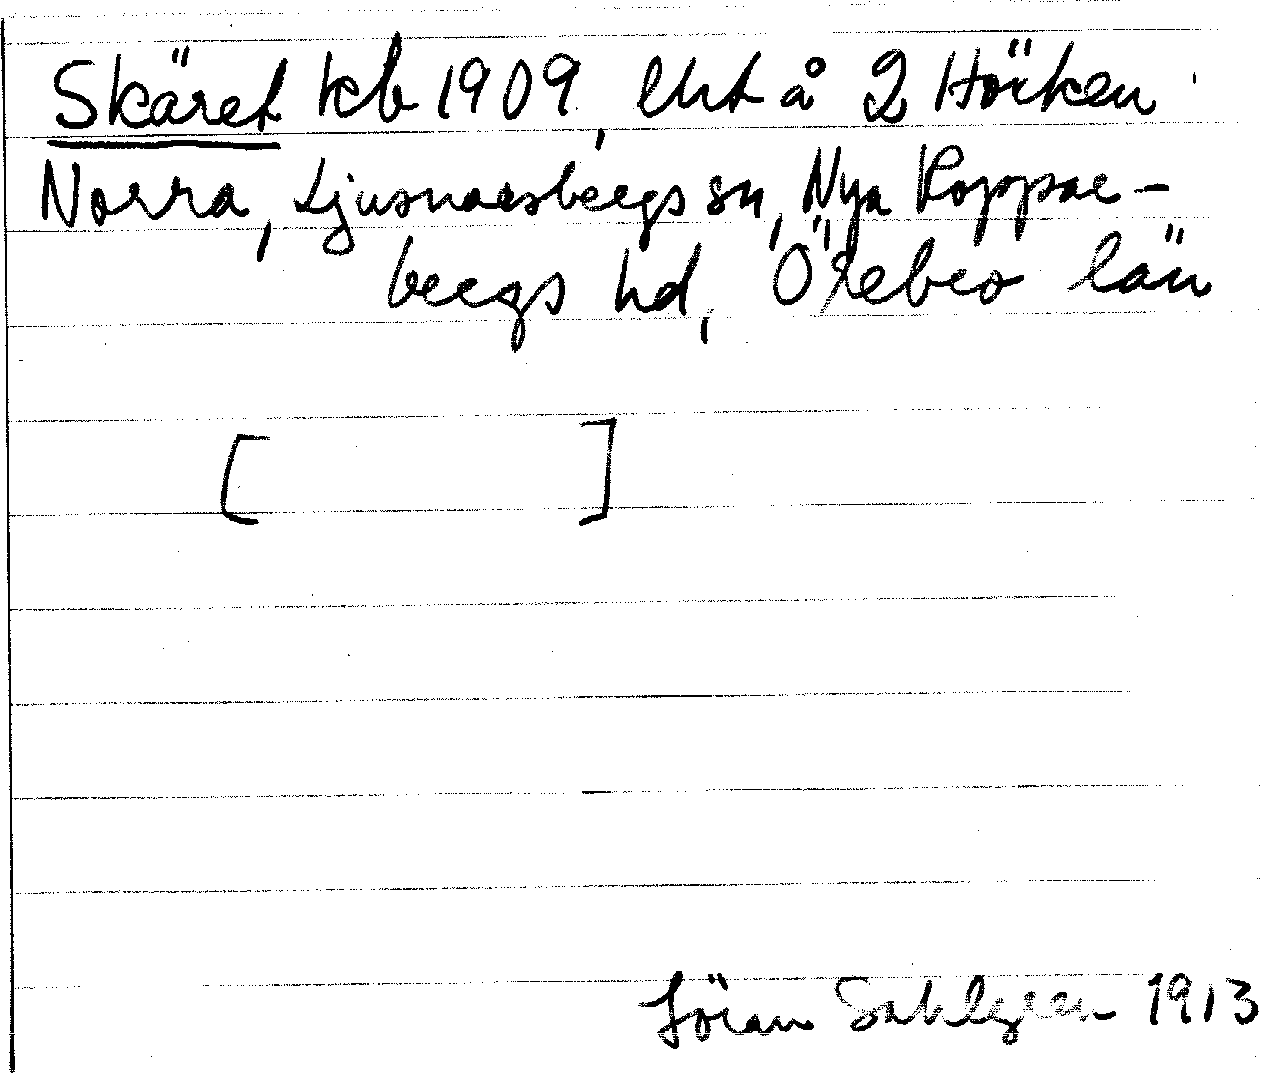 Skäret kb 1909, lht å 2 Hörken
Norra, Ljusnarsbergs sn, Nya Koppar-
bergs hd, Örebro län
[ ]
Jöran Sahlgren 1913